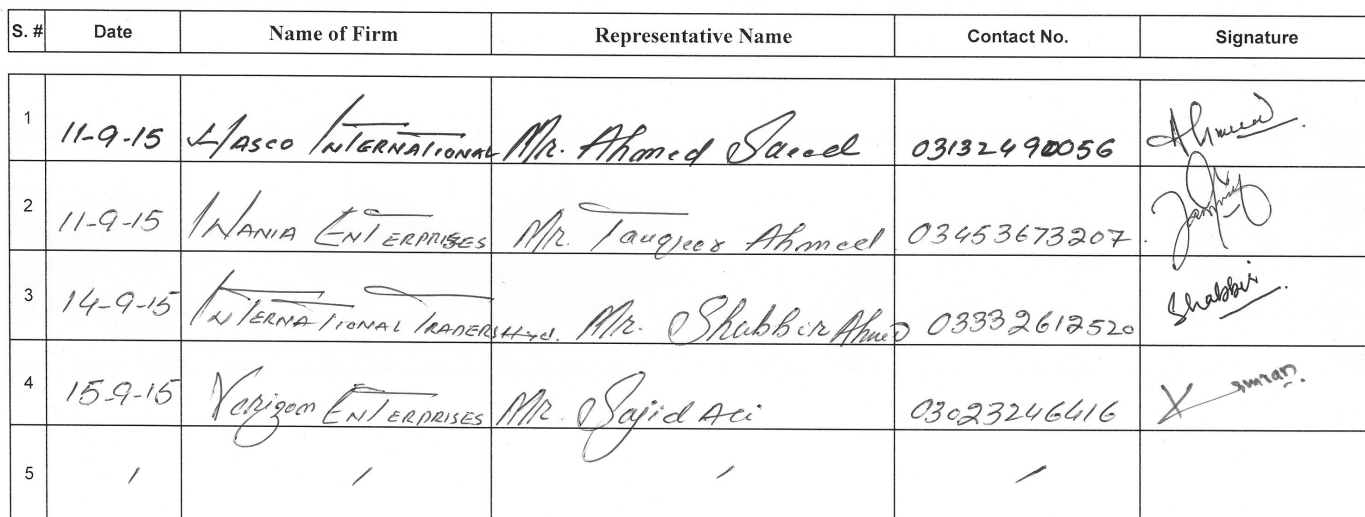 S. # Date Name of Firm Representative Name Contact No. Signature
1 11-9-15 Hasco International Mr. Ahmed Saeed 03132490056 Ahmed
2 11-9-15 Wania Enterprises Mr. Tauqeer Ahmed 03453673207
3 14-9-15 International Traders Hyd. Mr. Shabbir Ahmed 03332612520 Shabbir
4 15-9-15 Verizon Enterprises Mr. Sajid Ali 03023246416 X imran.
5 / / / /